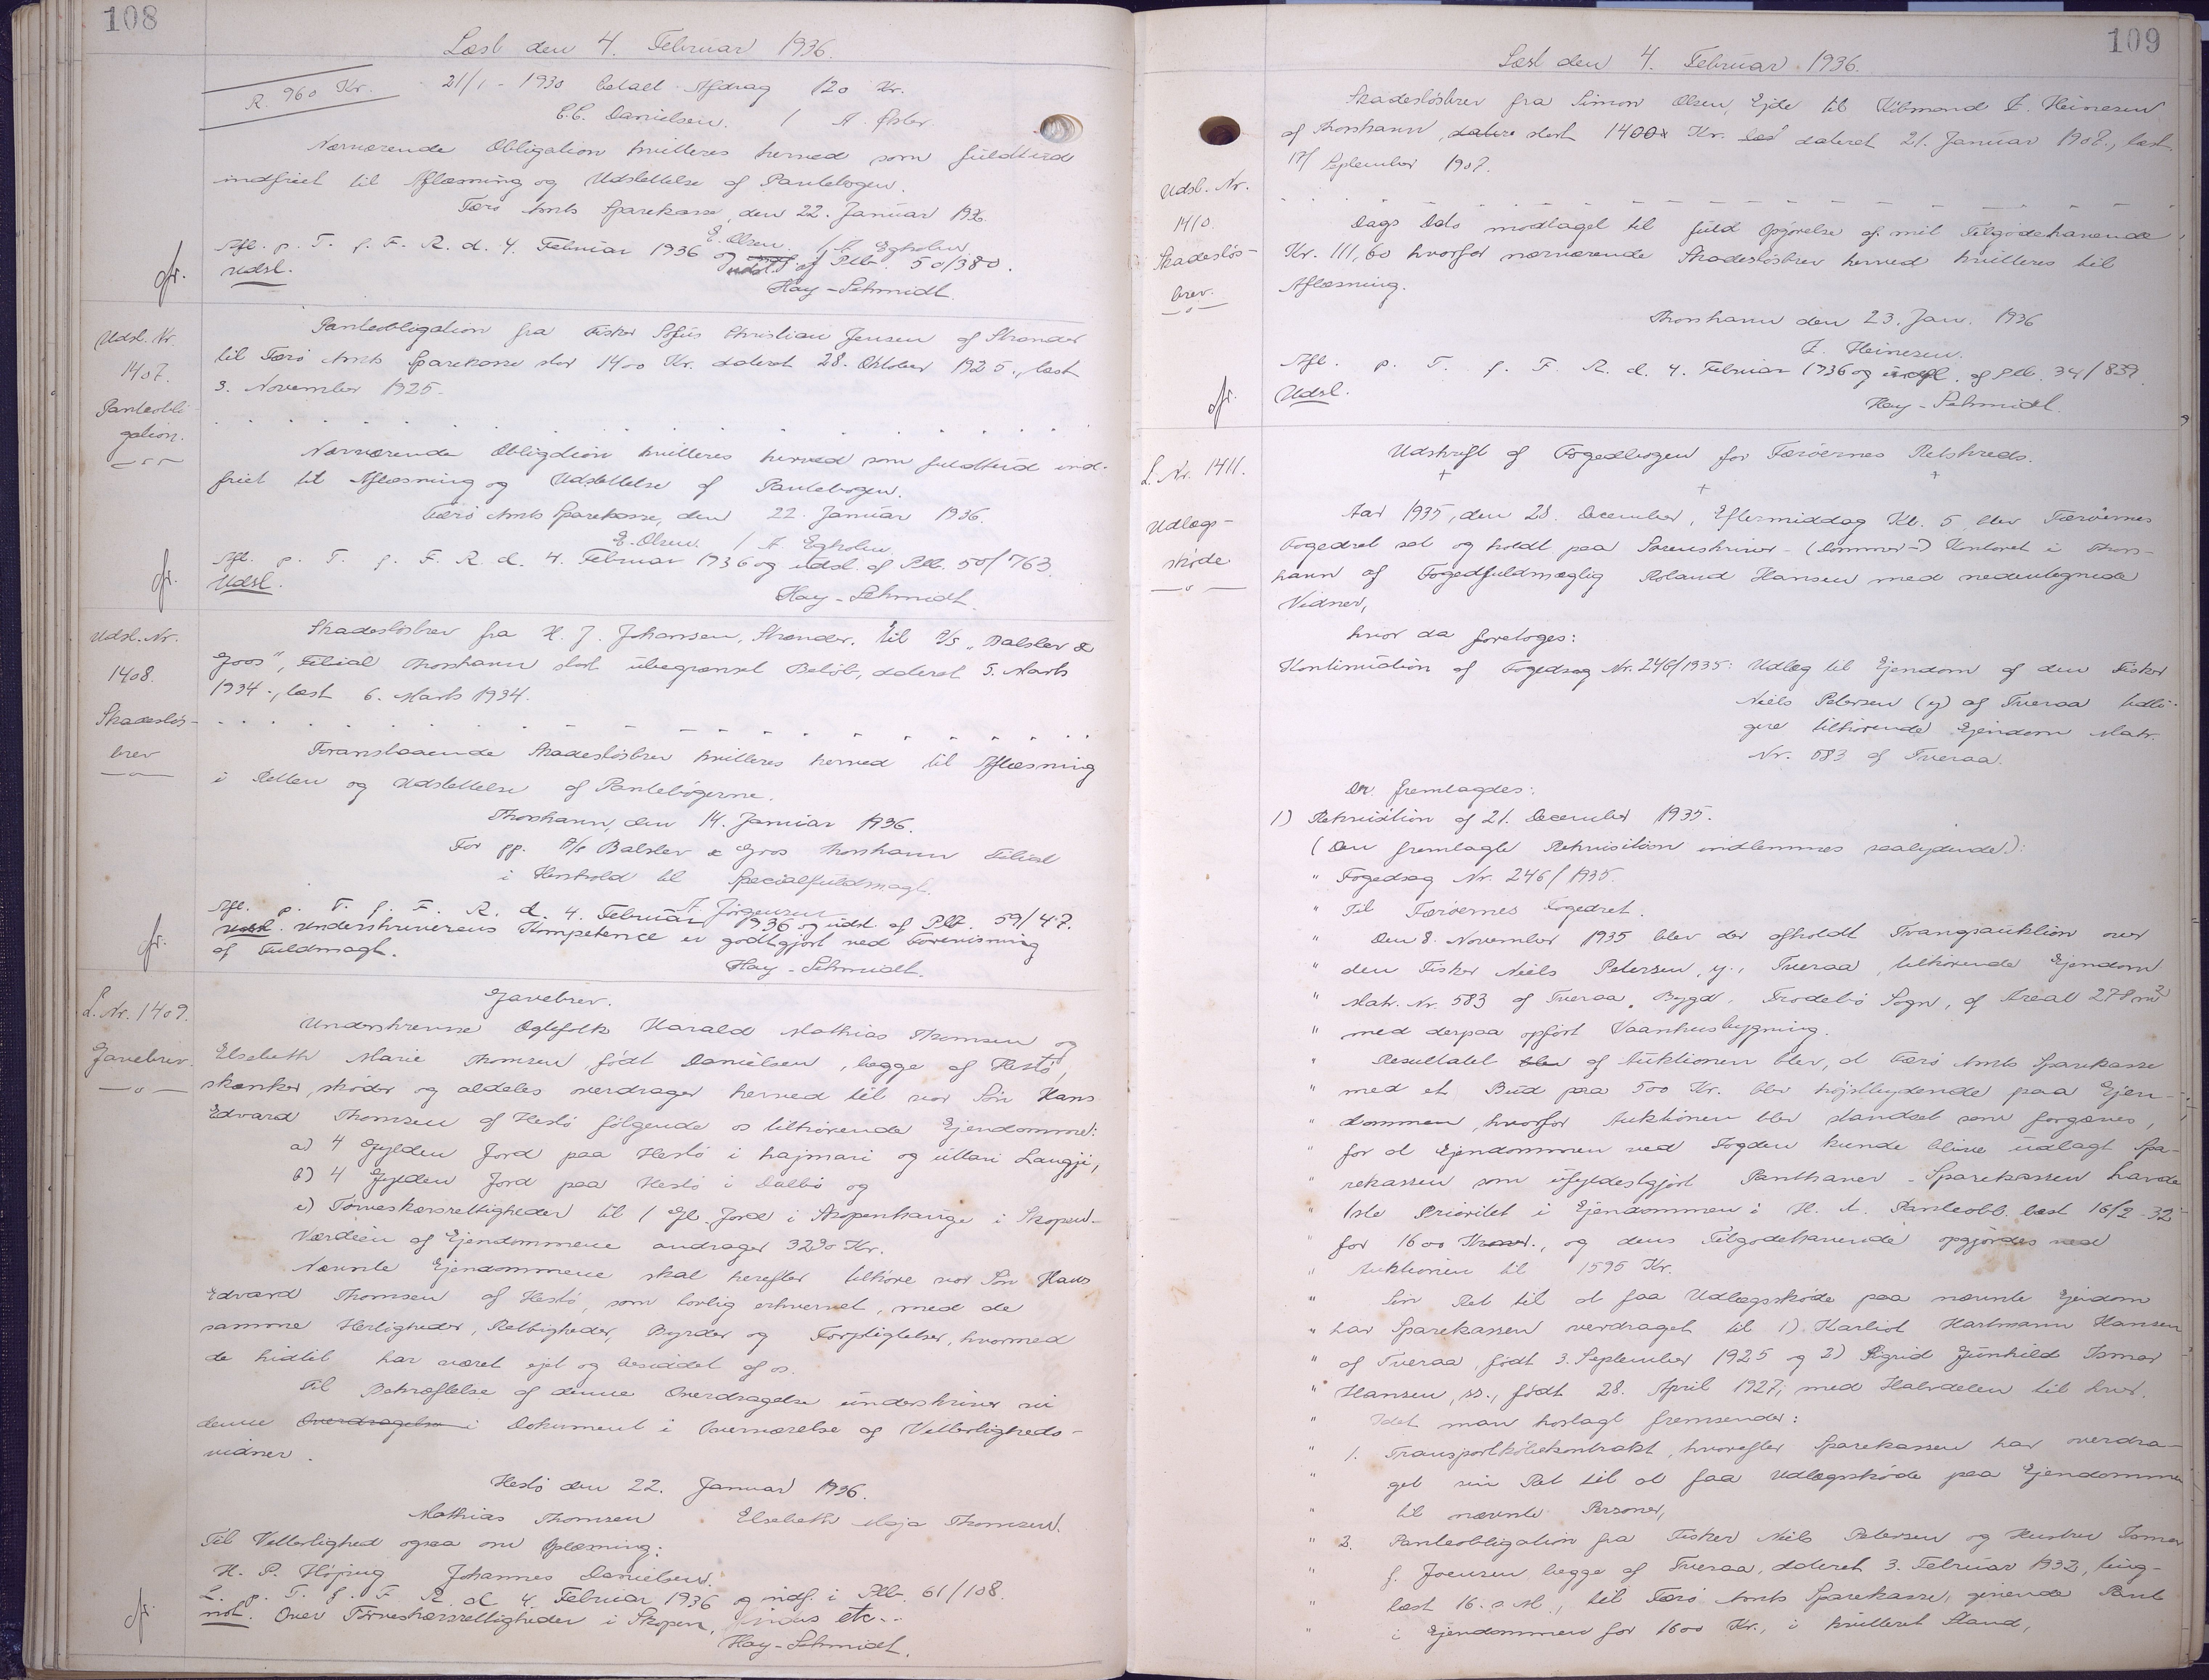 108
Læst den 4. Februar 1936.
R. 960 Kr. 21/1 - 1930 betalt Afdrag 120 Kr.
C.C. Danielsen. / A.
Nærværende Obligation kvitteres herved som fuldtud
indfriet til Aflæsning og Udslettelse af Pantebogen.
Færø Amts Sparekasse, den 22. Januar 1936
E. Olsen. / A Egholm
Afl. p. T. f. F. R. d. 4. Februar 1936 og udsl. af Ptb. 50/380.
Udsl.
Hay-Schmidt.
Udsl. Nr.
1407.
Panteobli-
gation.
Panteobligation fra Fisker Sofus Christian Jensen af Strander
til Færø Amts Sparekasse stor 1400 Kr. dateret 28. Oktober 1925., læst
3. November 1925.
Nærværende Obligation kvitteres herved som fuldtud ind-
friet til Aflæsning og Udslettelse af Pantebogen.
Færø Amts Sparekasse, den 22. Januar 1936.
E. Olsen / A Egholm.
Afl. p. T. f. F. R. d. 4. Februar 1936 og udsl. af Ptb. 50/763.
Udsl.
Hay-Schmidt.
Udsl. Nr.
1408.
Skadesløs-
brev
Skadesløsbrev fra H. J. Johansen, Strander. til A/S "Balslev &
Goos", Filial Thorshavn stort ubegrænset Beløb, dateret 5. Marts
1934., læst 6. Marts 1934.
Foranstaaende Skadesløsbrev kvitteres herved til Aflæsning
i Retten og Udslettelse af Pantebøgerne.
Thorshavn, den 14. Januar 1936.
For pp. A/S Balslev & Goos Thorshavn Filial
i Henhold til Specialfuldmagt.
A Jørgensen
Afl. p. T. f. F. R. d. 4. Februar 1936 og udsl. af Ptb. 59/47.
Udsl. Underskriverens Kompetence er godtgjort ved Forevisning
af Fuldmagt.
Hay-Schmidt.
L. Nr. 1409.
Gavebrev
Gavebrev.
Underskrevne Ægtefolk Harald Mathias Thomsen og
Elsebeth Marie Thomsen født Danielsen, begge af Hestø,
skænker, skøder og aldeles overdrager herved til vor Søn Hans
Edvard Thomsen af Hestø følgende os tilhørende Ejendomme:
a) 4 Gylden Jord paa Hestø i hajmari og uttari Langji,
b) 4 Gylden Jord paa Hestø i Dalbø og
c) Tørveskærsrettigheder til 1 Gl. Jord i Skopenhauge i Skopen.
Værdien af Ejendommene andrager 3290 Kr.
Nævnte Ejendommene skal herefter tilhøre vor Søn Hans
Edvard Thomsen af Hestø, som lovlig erhvervet, med de
samme Herligheder, Rettigheder, Byrder og Forpligtelser, hvormed
de hidtil har været ejet og besiddet af os.
Til Bekræftelse af denne Overdragelse underskriver vi
denne Overdragelse i Dokument i Overværelse af Vitterligheds-
vidner.
Hestø den 22. Januar 1936.
Mathias Thomsen Elsebeth Maja Thomsen.
Til Vitterlighed ogsaa om Oplæsning:
H. P. Højing Johannes Danielsen.
L. p. T. f. F. R. d. 4. Februar 1936 og indf. i Ptb. 61/108.
not. Over Tørveskærsrettigheder i Skopen, etc..
Hay-Schmidt.
109
Læst den 4. Februar 1936.
Udsl. Nr.
1410.
Skadesløs-
brev.
Skadesløsbrev fra Simon Olsen, Ejde til Købmand Z. Heinesen
af Thorshavn, datere stort 1400 Kr. læst dateret 21. Januar 1908., læst
17/ September 1907.
Dags Dato modtaget til fuld Opgørelse af mit Tilgodehavende,
Kr. 111,60 hvorfor nærværende Skadesløsbrev herved kvitteres til
Aflæsning.
Thorshavn den 23. Jan. 1936
Z. Heinesen.
Afl. p. T. f. F. R. d. 4. Februar 1936 og af Ptb. 34/839.
Udsl.
Hay-Schmidt.
L. Nr. 1411.
Udlægs-
skøde
Udskrift af Fogedbogen for Færøernes Retskreds.
Aar 1935, den 28. December, Eftermiddag Kl. 5 blev Færøernes
Fogedret sat og holdt paa Sorenskriver- (Dommer-) Kontoret i Thors-
havn af Fogedfuldmægtig Roland Hansen med nedentegnede
Vidner,
hvor da foretoges:
Kontinuation af Fogedsag Nr. 246/1935: Udlæg til Ejendom af den Fisker
Niels Petersen (y) af Tveraa tidli-
gere tilhørende Ejendom Matr.
Nr. 583 af Tveraa.
Der fremlagdes:
1) Rekvisition af 21. December 1935.
(Den fremlagte Rekvisition indlemmes saalydende):
" Fogedsag Nr. 246/1935.
" Til Færøernes Fogedret.
" Den 8. November 1935 blev der afholdt Tvangsauktion over
" den Fisker Niels Petersen, y., Tveraa, tilhørende Ejendom
" Matr. Nr. 583 af Tveraa Bygd, Frodebø Sogn, af Areal 278 m2
" med derpaa opført Vaanhusbygning.
" Resultatet blev af Auktionen blev, at Færø Amts Sparekasse
" med et Bud paa 500 Kr. blev højstbydende paa Ejen-
" dommen, hvorfor Auktionen blev standset som forgæves,
" for at Ejendommen ved Fogden kunde blive udlagt Spa-
" rekassen som ufyldestgjort Panthaver. Sparekassen havde
" 1ste Prioritet i Ejendommen i H. t. Panteobl. læst 16/2-32
" for 1600 Kroner., og dens Tilgodehavende opgjordes ved
" Auktionen til 1595 Kr.
" Sin Ret til at faa Udlægsskøde paa nævnte Ejendom
" har Sparekassen overdraget til 1) Karliot Hartmann Hansen
" af Tveraa, født 3. September 1925 og 2) Sigrid Gunhild Ismar
" Hansen, ss., født 28. April 1927, med Halvdelen til hver.
" Idet man hoslagt fremsender:
" 1. Transportkøbekontrakt, hvorefter Sparekassen har overdra-
" get sin Ret til at faa Udlægsskøde paa Ejendommen
" til nævnte Personer,
" 2. Panteobligation fra Fisker Niels Petersen og Hustru Ismar
" f. Joensen, begge af Tveraa, dateret 3. Februar 1932, ting-
" læst 16. s. M., til Færø Amts Sparekasse, givende Pant
" i Ejendommen for 1600 Kr., i kvitteret Stand,